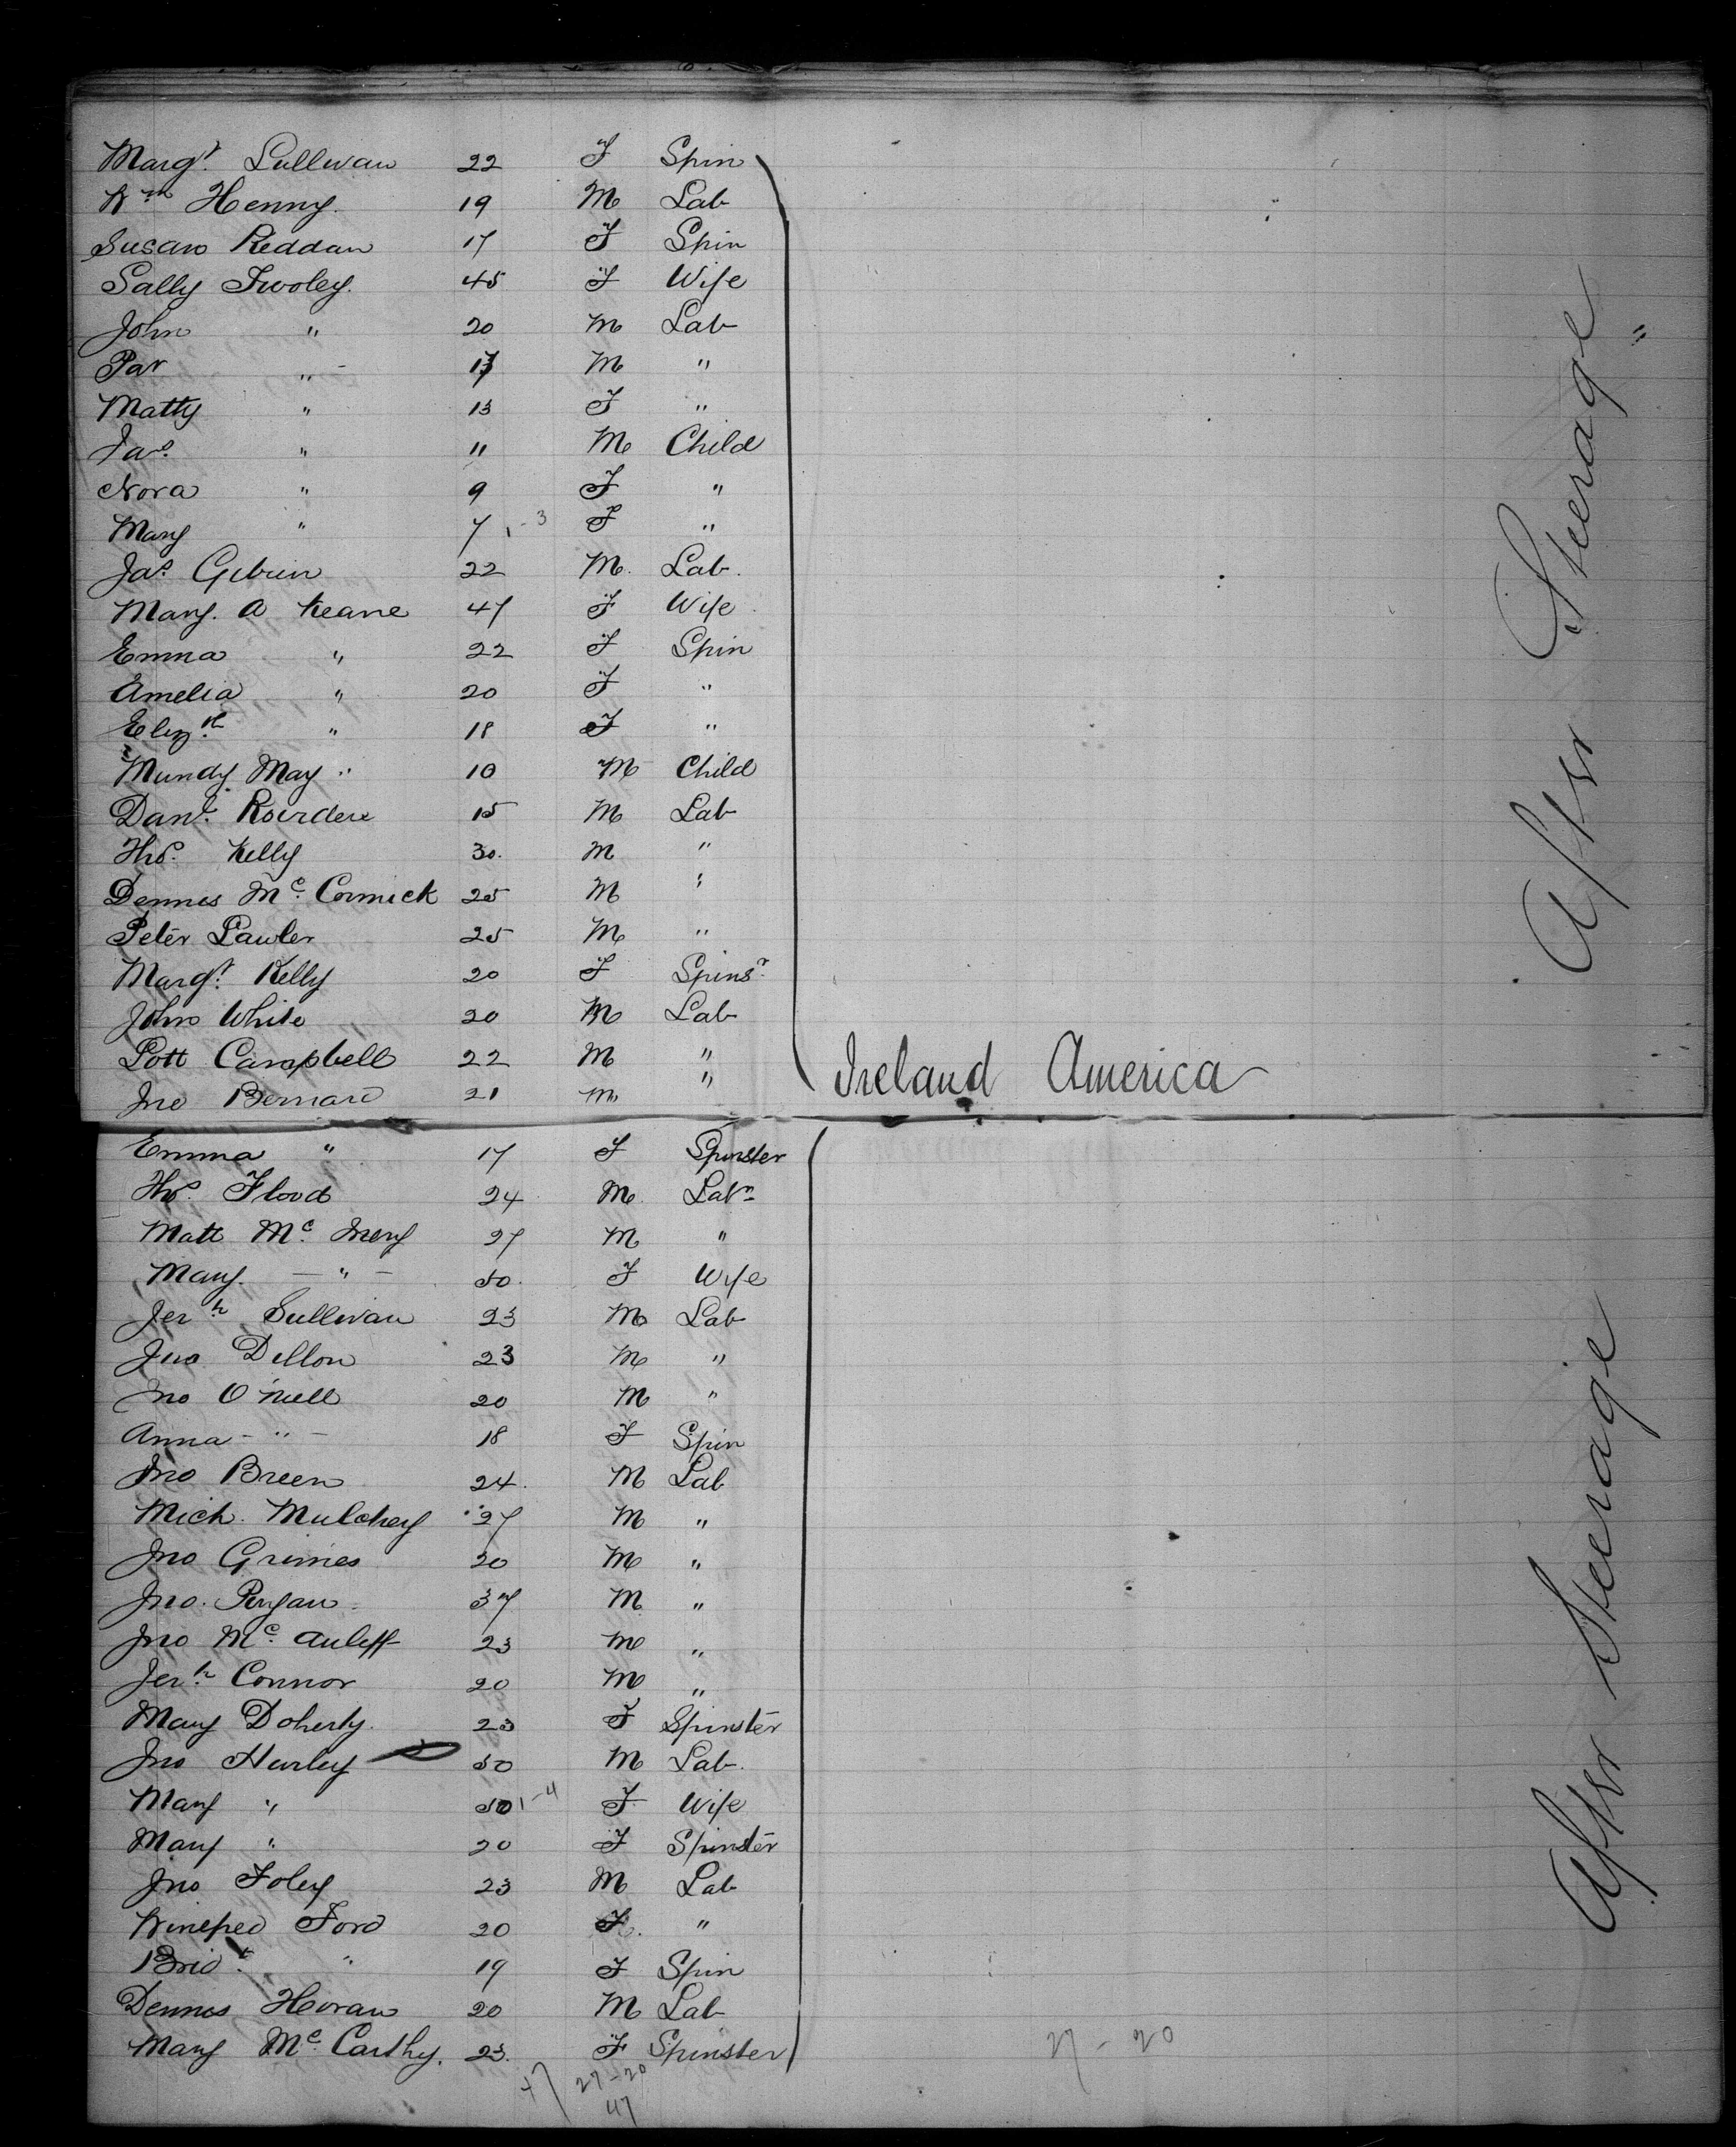 Margt. Sullivan 22 F Spin
Wm Henny 19 M Lab
Susan Reddan 17 F Spin
Sally Twoley 45 F Wife
John " 20 M Lab
Pat " M "
Matty " 13 F "
Jas. " 11 M Child
Nora " 9 F "
Mary " 7 1-3 F "
Jas. 22 M. Lab.
Mary. A Keane 47 F Wife
Emma " 22 F Spin
Amelia " 20 F "
Elizth " 18 F "
Mundy May " 10 M Child
Danl. 15 M Lab
Thos. Kelly 30. M "
Dennis Mc. Cormick 25 M "
Peter Lawler 25 M "
Margt. Kelly 20 F Spinsr.
John White 20 M Lab
Campbell 22 M "
Jno Bernard 21 M "
Ireland America
After Steerage "
Emma " 17 F Spinster
Thos. Flood 24 M. Labr
Matt Mc. Inery 27 M "
Mary. — " — 50. F Wife
Jerh Sullivan 23 M Lab
Jno Dillon 23 M "
Jno O'Neill 20 M "
Anna - " - 18 F Spin
Jno Breen 24. M Lab
Mich. Mulchey 27 M "
Jno Grimes 20 M "
Jno. 37 M "
Jno Mc. Auleff 23 M "
Jerh. Connor 20 M "
Mary Doherty. 23 F Spinster
Jno Hurley 50 M Lab.
Mary " 50 1-4 F Wife
Mary " 20 F Spinster
Jno Foley 23 M Lab
Winefred Ford 20 F "
Bridt. " 19 F Spin
Dennis Horan 20 M Lab
Mary Mc. Carthy. 23. F Spinster
47 27-20 27-20
47
After Steerage